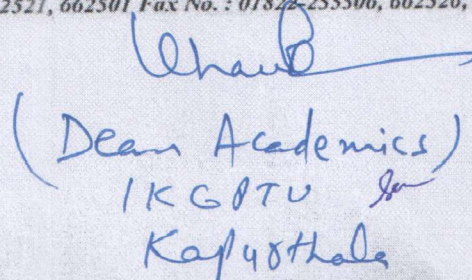 2521, 662501 Fax No. : 01822-255506, 662526,
(Dean Academics)
IKGPTU
Kapurthala